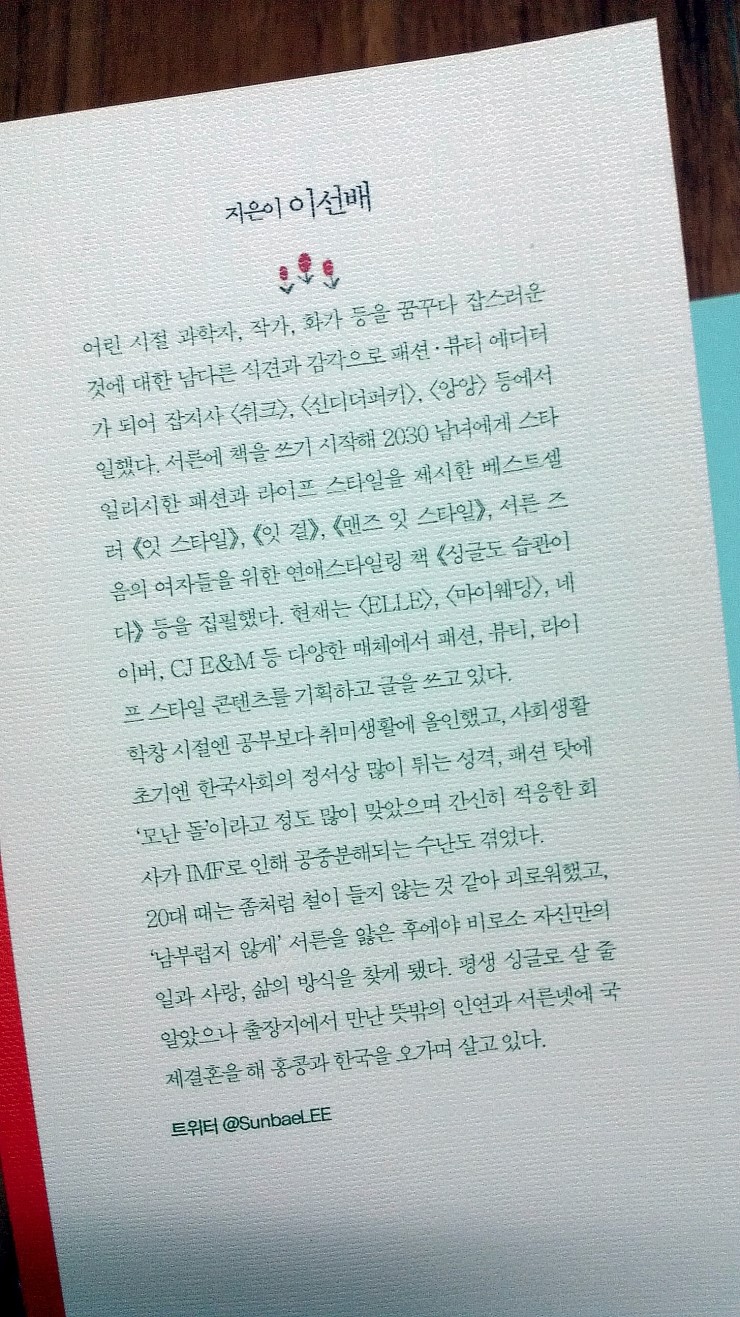 지은이 이선배
어린 시절 과학자, 작가, 화가 등을 꿈꾸다 잡스러운
것에 대한 남다른 식견과 감각으로 패션·뷰티 에디터
가 되어 잡지사 〈쉬크〉, 〈신디더퍼키〉, 〈앙앙〉 등에서
일했다. 서른에 책을 쓰기 시작해 2030 남녀에게 스타
일리시한 패션과 라이프 스타일을 제시한 베스트셀
러 《잇 스타일》, 《잇 걸》, 《맨즈 잇 스타일》, 서른 즈
음의 여자들을 위한 연애스타일링 책 《싱글도 습관이
다》 등을 집필했다. 현재는 〈ELLE〉, 〈마이웨딩〉, 네
이버, CJ E&M 등 다양한 매체에서 패션, 뷰티, 라이
프 스타일 콘텐츠를 기획하고 글을 쓰고 있다.
학창 시절엔 공부보다 취미생활에 올인했고, 사회생활
초기엔 한국사회의 정서상 많이 튀는 성격, 패션 탓에
‘모난 돌’이라고 정도 많이 맞았으며 간신히 적응한 회
사가 IMF로 인해 공중분해되는 수난도 겪었다.
20대 때는 좀처럼 철이 들지 않는 것 같아 괴로워했고,
‘남부럽지 않게’ 서른을 앓은 후에야 비로소 자신만의
일과 사랑, 삶의 방식을 찾게 됐다. 평생 싱글로 살 줄
알았으나 출장지에서 만난 뜻밖의 인연과 서른넷에 국
제결혼을 해 홍콩과 한국을 오가며 살고 있다.
트위터 @SunbaeLEE